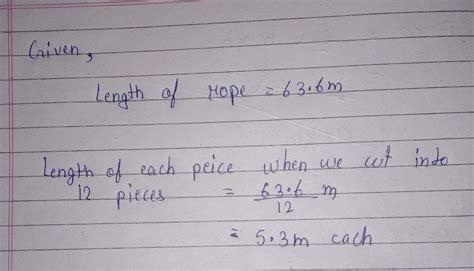 Given,
Length of rope = 63.6m
Length of each peice when we cut into
12 pieces = 63.6 m
12
= 5.3m each